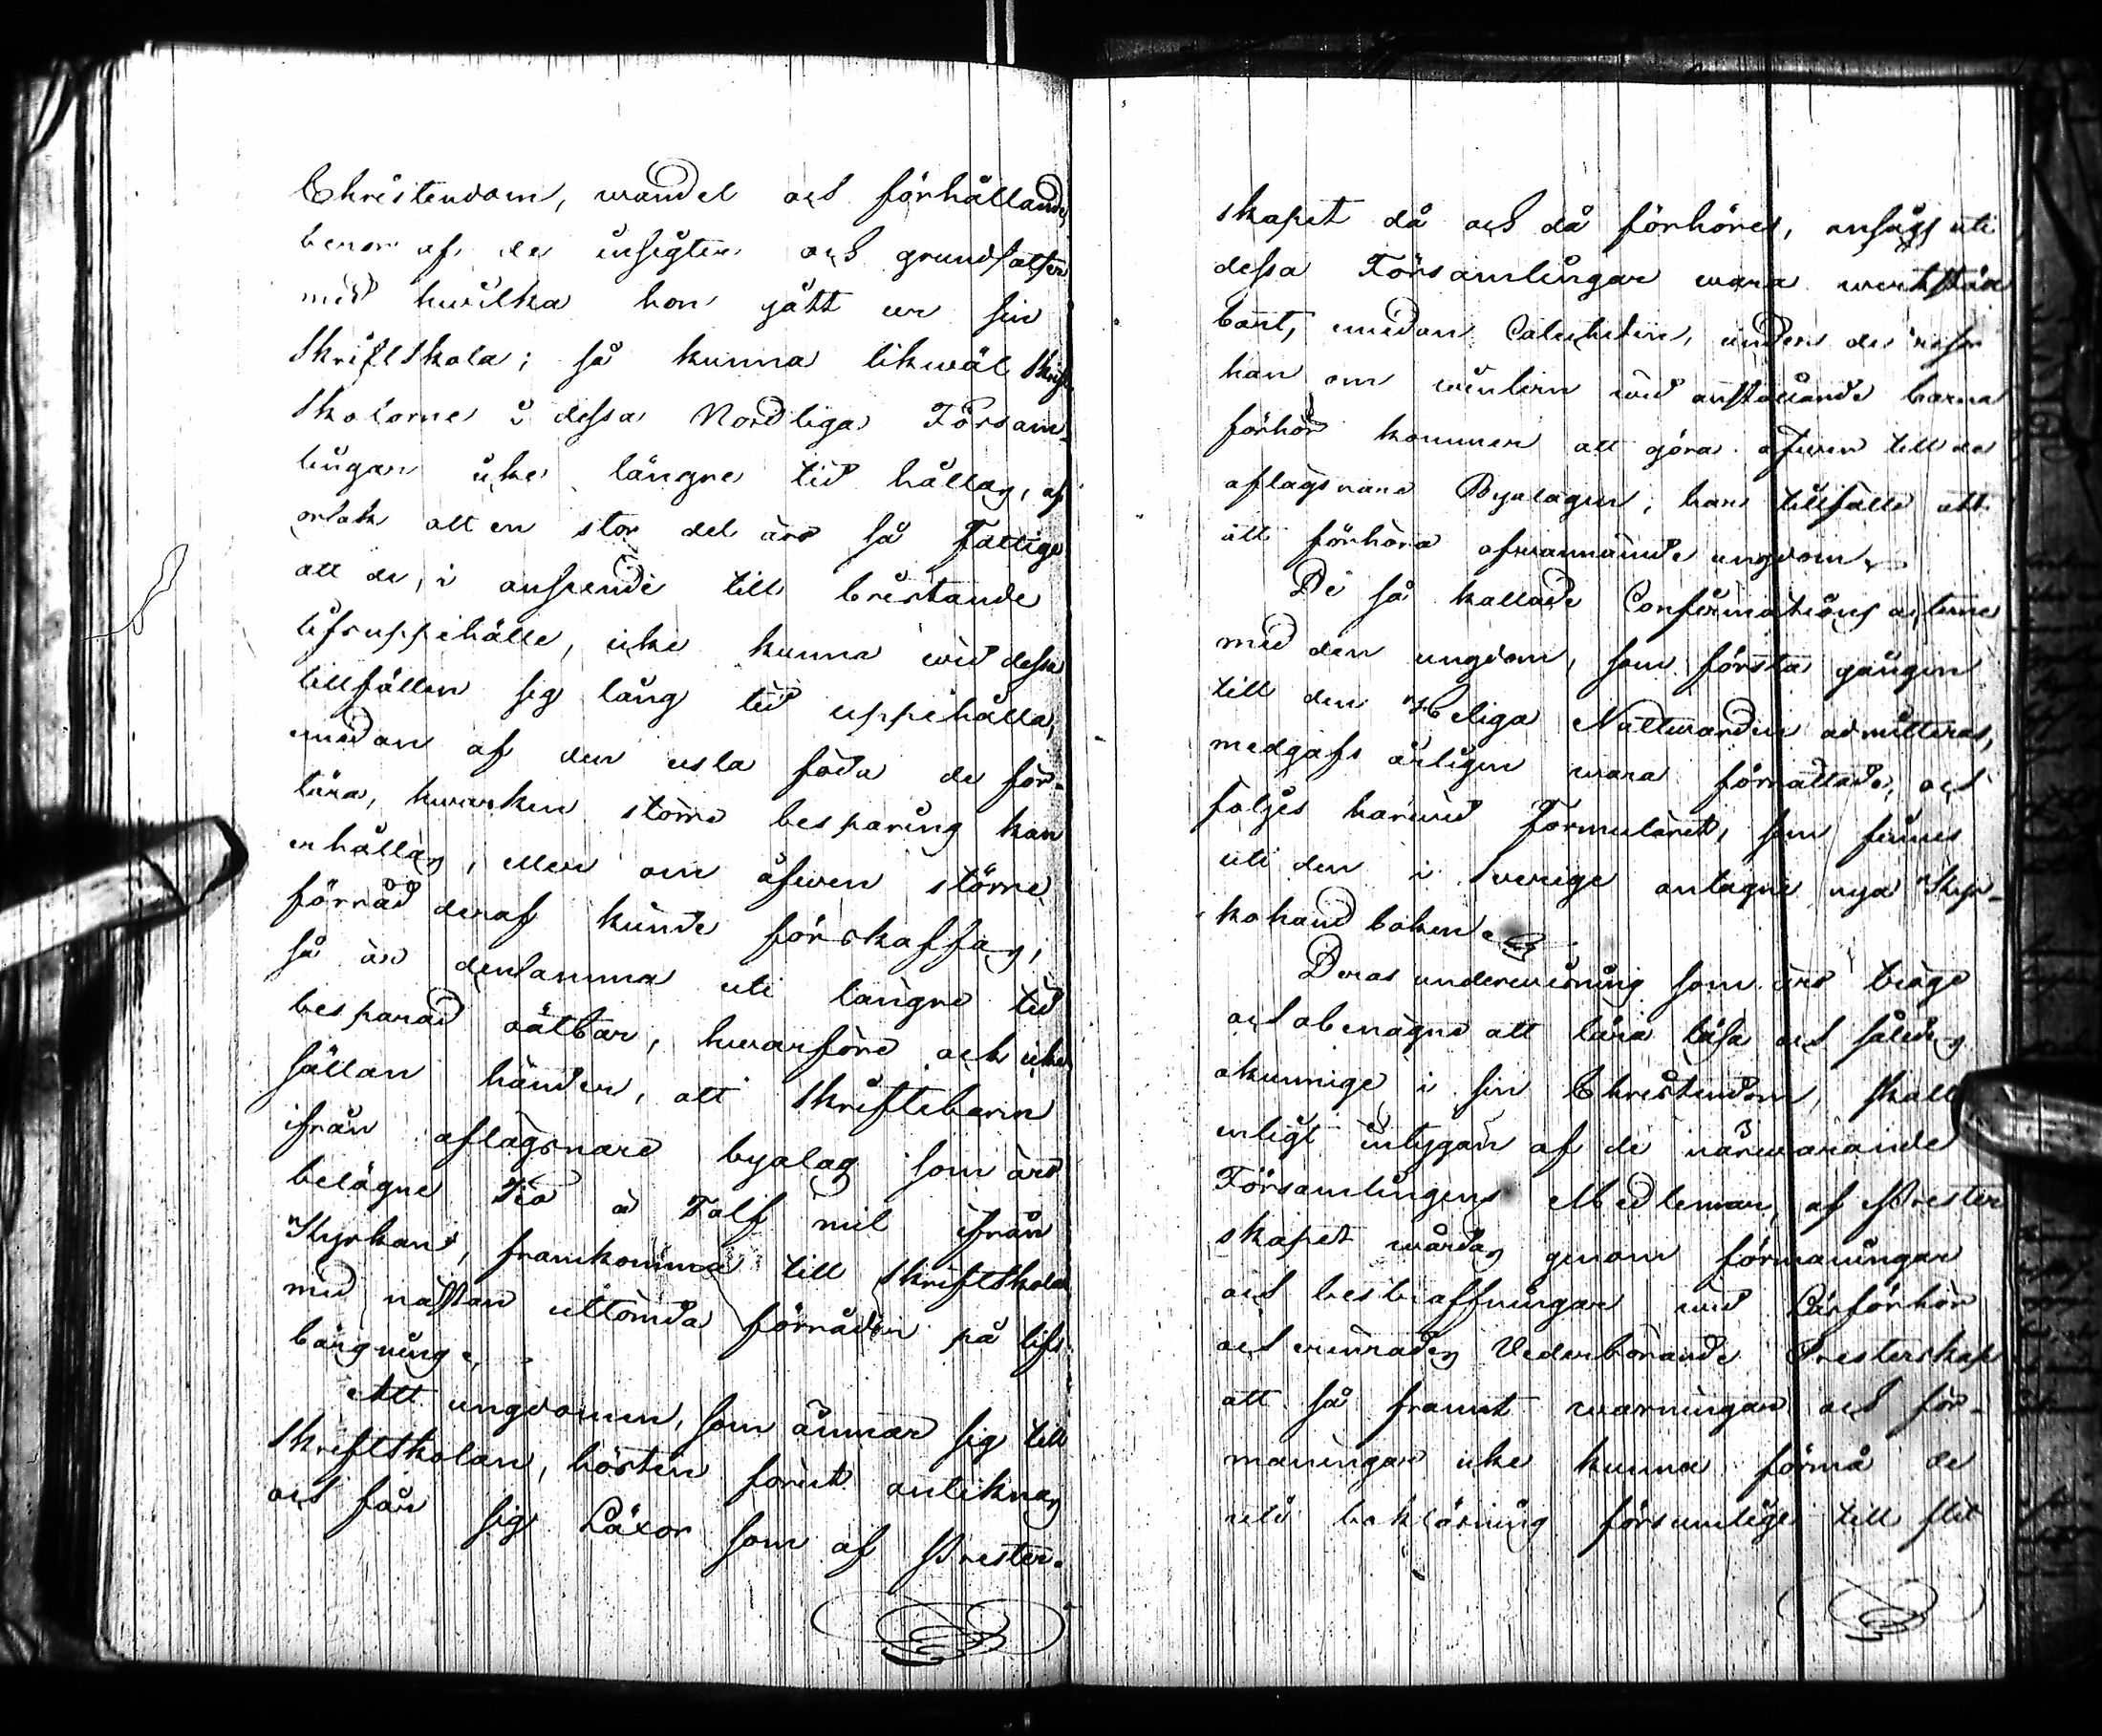 Christendom, wandel och förhållande,
beror af de insigter och grundsatser
med hwilka hon gått ur sin
Skriftskola; så kunna likwäl Skrift
Skolorne i dessa Nordliga Försam-
lingar icke längre tid hållas, af
orsak att en stor del äro så Fattige
att de, i anseende till bristande
lifsuppehälle, icke kunna wid dessa
tillfällen sig lång tid uppehålla,
emedan af den usla föda de för-
tära, hwarken större besparing kan
erhållas, eller om äfwen större
förråd deraf kunde förskaffas,
så är densamma uti längre tid
besparad oätbar, hwarföre och icke
sällan händer, att Skriftebarn
ifrån aflägsnare byalag som äro
belägne Tio à Tolf mil ifrån
Kyrkan, framkomma till Skriftskolan
med nästan uttömda förråder på lifs
bärgning.
Att ungdomen, som ämnar sig till
Skriftskolan, hösten förut antiknas
och får sig Läxor som af Prester-
skapet då och då förhöres, ansågs uti
dessa Församlingar wara werkstäl
bart, emedan Catecheten, under de resor
han om wintern wid anställande barna
förhör kommer att göra äfwen till de
aflägsnare Byalagen, har tillfälle att
att förhöra ofwannämde ungdom.
De så kallade Confirmations acterne
med den ungdom, som första gången
till den Heliga Nattwarden admitteras,
medgafs årligen wara förrättade, och
följes härwid Formuläret, som finnes
uti den i Sverige antagne nya Kyr-
kohandboken.
Deras underwisning som äro tröge
och obenägne att lära läsa och således
okunnige i sin Christendom, skall
enligt intygan af de närwarande
Församlingens Medlemar, af Prester
skapet wårdas genom förmaningar
och bestraffningar wid Läsförhör
och erinrades Vederbörande Presterskap
att så framt warningar och för-
maningar icke kunna förmå de
uti boklärning försumlige till flit